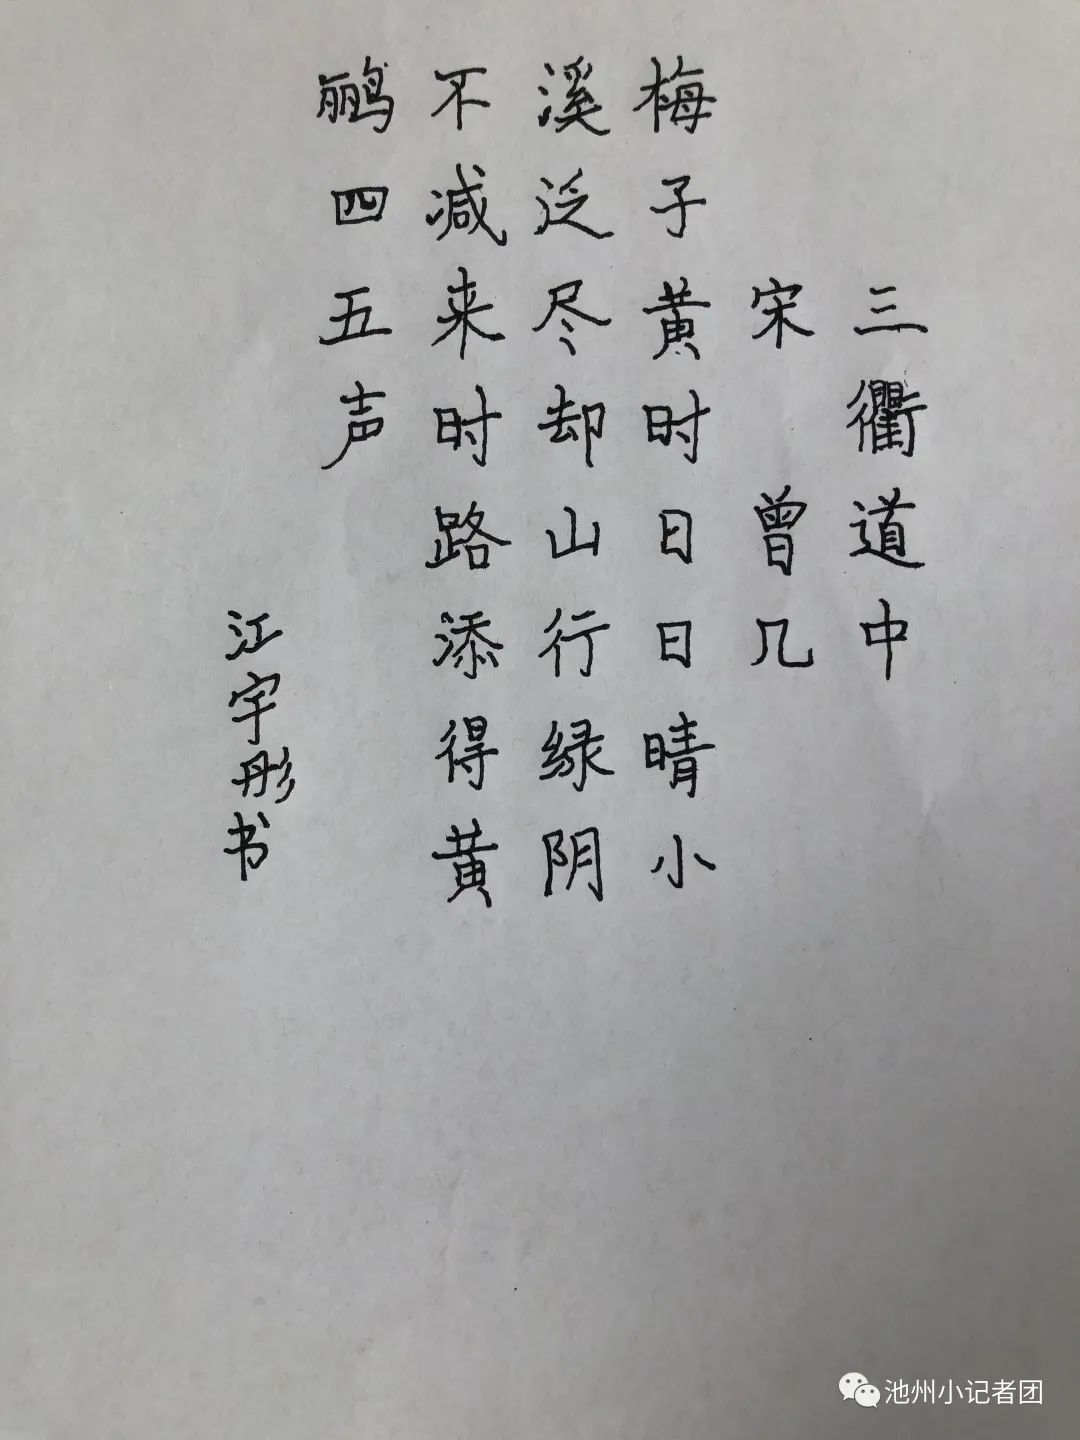 三衢道中
宋 曾几
梅子黄时日日晴小
溪泛尽却山行绿阴
不减来时路添得黄
鹂四五声
江宇彤书
池州小记者团